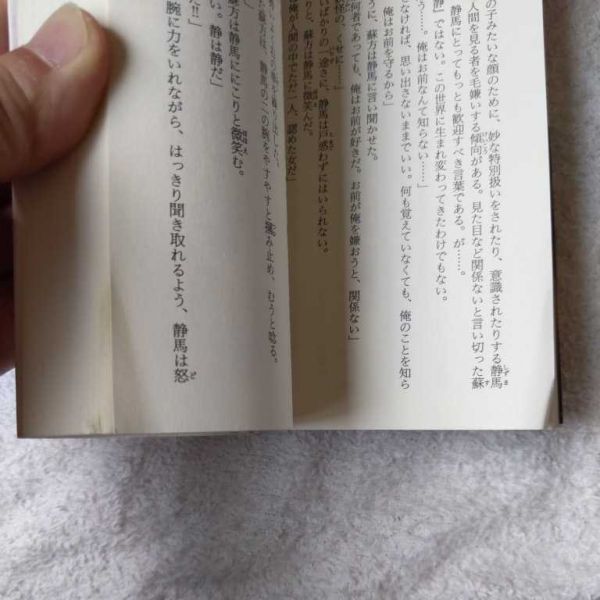 の子みたいな顔のために、妙な特別扱いをされたり、意識されたりする静馬
人間を見る者を毛嫌いする傾向がある。見た目など関係ないと言い切った蘇
静馬にとってもっとも歓迎すべき言葉である。が……。
静」ではない。この世界に生まれ変わってきたわけでもない。
う……。俺はお前なんて知らない……」
となければ、思い出さないままでいい。何も覚えていなくても、俺のことを知ら
俺はお前を守るから」
うに、蘇方は静馬に言い聞かせた。
何者であっても、俺はお前が好きだ。お前が俺を嫌おうと、関係ない」
怪の、くせに……」
いばかりの一途さに、静馬は戸惑わずにはいられない。
りと、蘇方は静馬に微笑んだ。
俺が、人間の中でただ一人、認めた女だ」
蘇方は、静馬の二の腕をやすやすと掴み止め、むうと唸る。
蘇方は静馬ににこりと微笑む。
い。静は静だ」
!!」
腕に力をいれながら、はっきり聞き取れるよう、静馬は怒